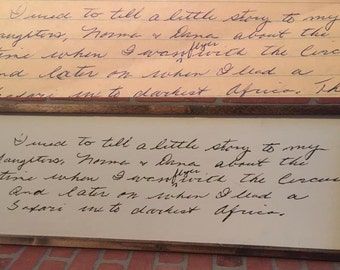 I used to till a little story to my
daughters, Norma & Dana about the
time when I was flyer with the Circus
and later on when I lead a
Safari in to darkest Africa. Th
I used to tell a little story to my
daughters, Norma & Dana about the
time when I was flyer with the Circus
and later on when I lead a
Safari in to darkest Africa.